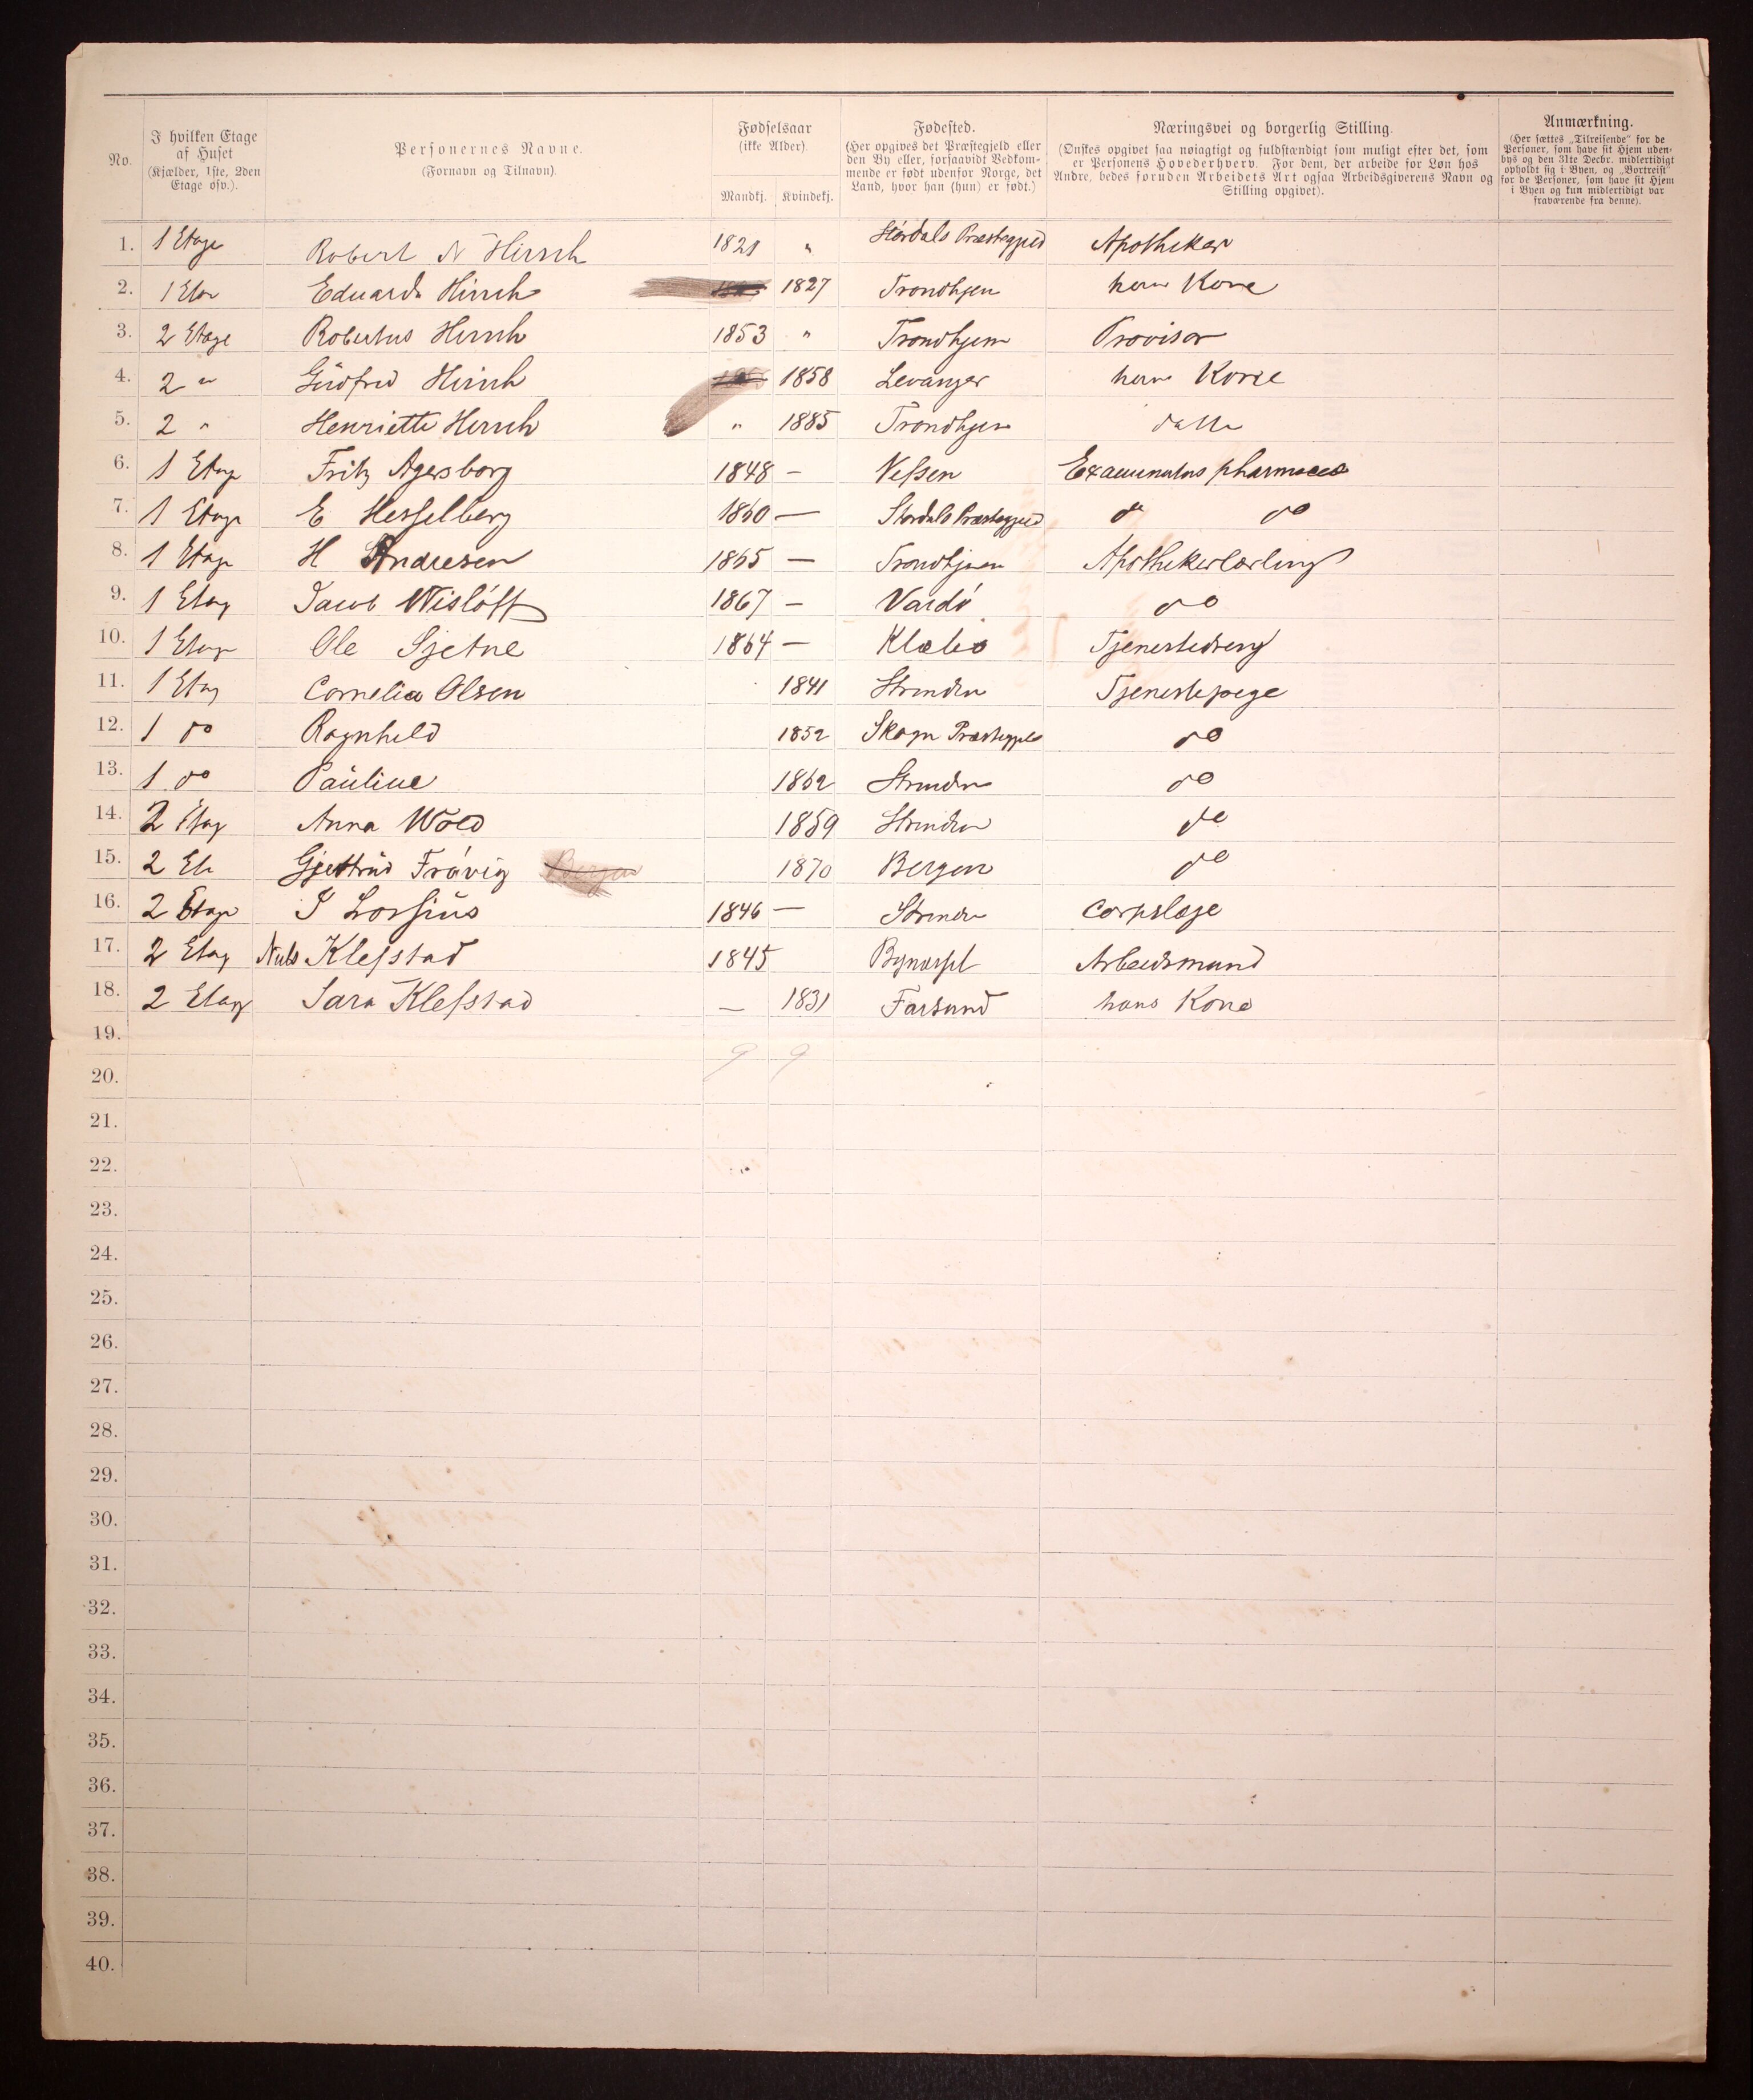 No.
I hvilken Etage af Huset (Kjælder, 1ste, 2den Etage osv.).
Personernes Navne. (Fornavn og Tilnavn).
Fødselsaar (ikke Alder). Mandkj. Kvindekj.
Fødested. (Her opgives det Præstegjeld eller den By eller, forsaavidt Vedkommende er født udenfor Norge, det Land, hvor han (hun) er født.)
Næringsvei og borgerlig Stilling. (Ønskes opgivet saa nøiagtigt og fuldstændigt som muligt efter det, som er Personens Hovederhverv. For dem, der arbeide for Løn hos Andre, bedes foruden Arbeidets Art ogsaa Arbeidsgiverens Navn og Stilling opgivet).
Anmærkning. (Her sættes „Tilreisende“ for de Personer, som have sit Hjem udenbys og den 31te Decbr. midlertidigt opholdt sig i Byen, og „Bortreist“ for de Personer, som have sit Hjem i Byen og kun midlertidigt var fraværende fra denne).
1. 1 Etage Robert N Hirsch 1821 " Stördals Præstegjeld Apotheker
2. 1 Eta Eduarda Hirsch 1827 Trondhjem hans Kone
3. 2 Etage Robertus Hirsch 1853 " Trondhjem Provisor
4. 2 " Gudfrid Hirsch 1858 Levanger hans Kone
5. 2 " Henriette Hirsch " 1885 Trondhjem datter
6. 1 Etage Fritz Agersborg 1848 — Vefsen Examinatus pharmacia
7. 1 Etage E Hesselberg 1860 — Stördals Præstegjeld do do
8. 1 Etage H Andresen 1865 — Trondhjem Apothekerlærling
9. 1 Etag Jacob Wisløff 1867 — Vardö do
10. 1 Etage Ole Sjetne 1864 — Klæbo Tjenestedreng
11. 1 Etag Cornelia Olsen 1841 Strinden Tjenestepige
12. 1 do Ragnhild 1852 Skogn Præstegjeld do
13. 1 do Pauline 1862 Strinden do
14. 2 Etag Anna Wold 1859 Strinden do
15. 2 Et Gjertrud Frövig Bergen 1870 Bergen do
16. 2 Etage I Lossius 1846 — Strinden Corpslæge
17. 2 Etag Nils Klefstad 1845 Bynæsset Arbeidsmand
18. 2 Etag Sara Klefstad — 1831 Farsund hans Kone
19.
9 9
20.
21.
22.
23.
24.
25.
26.
27.
28.
29.
30.
31.
32.
33.
34.
35.
36.
37.
38.
39.
40.